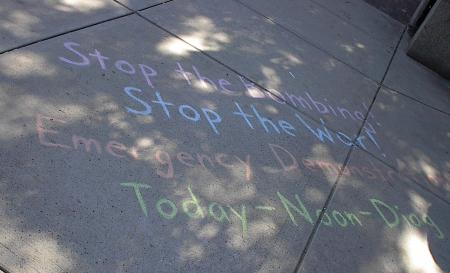 Stop the Bombing!
Stop the War!
Emergency Demonstration
Today-Noon-Diag